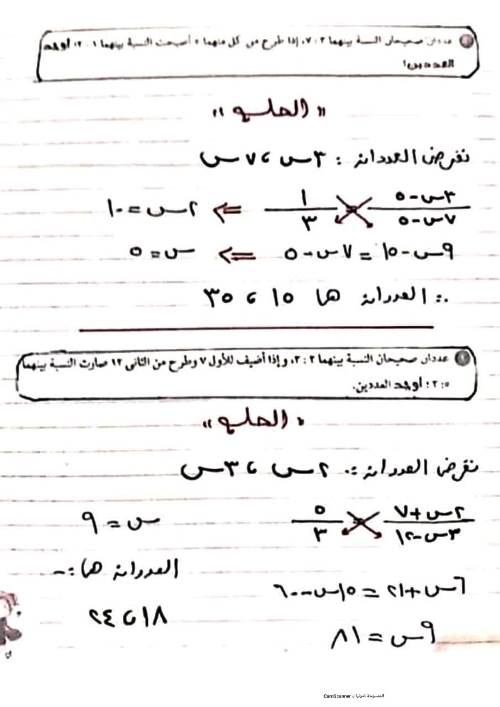 عددان صحيحان النسبة بينهما ٣ : ٧، إذا طرح من كل منهما ٥ أصبحت النسبة بينهما ١ : ٣، أوجد
العددين؟
« الحلـــ »
نفرض العددان : ٣س ، ٧س
٣س-٥ / ٧س-٥ = ١ / ٣ ⇐ ٢س = ١٠
٩س-١٥ = ٧س-٥ ⇐ س = ٥
∴ العددان هما ١٥ ، ٣٥
عددان صحيحان النسبة بينهما ٢ : ٣، وإذا أضيف للأول ٧ وطرح من الثانى ١٢ صارت النسبة بينهما
٥ : ٣ ؛ أوجد العددين.
« الحلـــ »
نفرض العددان :- ٢س ، ٣س
٢س+٧ / ٣س-١٢ = ٥ / ٣
س = ٩
٦س+٢١ = ١٥س-٦٠
العددان هما :-
٩س = ٨١
١٨ ، ٢٤
الممسوحة ضوئيا بـ CamScanner